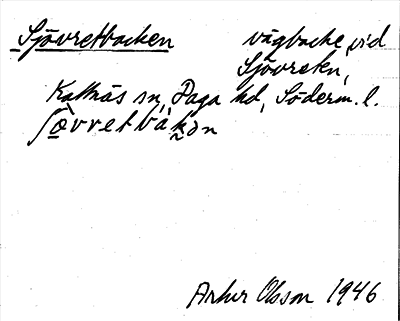 Sjövretbacken vägbacke vid
Sjövreten,
Kattnäs sn, Daga hd, Söderm. l.
ʃövvretbákən
Artur Olsson 1946